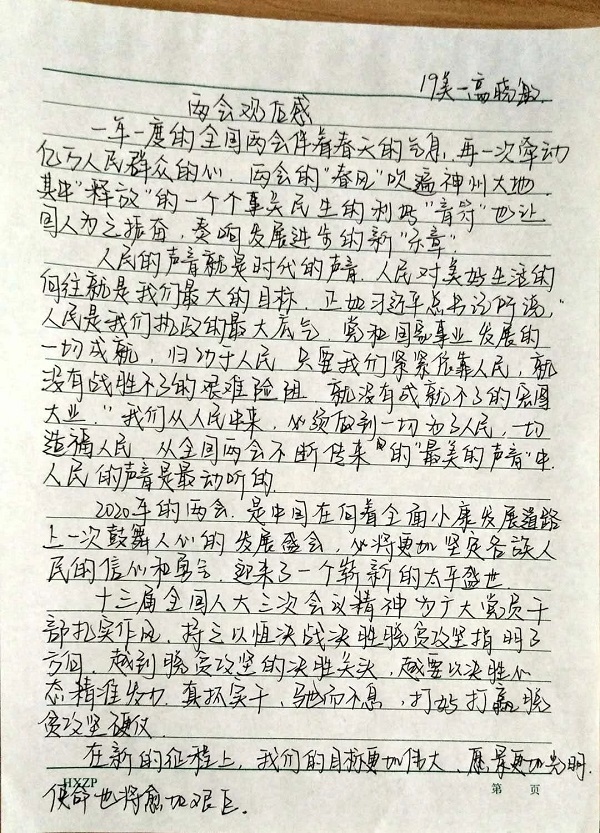 19美一高晓敏.
两会观后感
一年一度的全国两会伴着春天的气息,再一次牵动
亿万人民群众的心.两会的"春风"吹遍神州大地.
其中"释放"的一个个事关民生的利好"音符"也让
国人为之振奋,奏响发展进步的新"乐章"
人民的声音就是时代的声音.人民对美好生活的
向往就是我们最大的目标.正如习近平总书记所说,"
人民是我们执政的最大底气 党和国家事业发展的
一切成就,归功于人民 只要我们紧紧依靠人民,就
没有战胜不了的艰难险阻 就没有成就不了的宏图
大业."我们从人民中来,必须做到一切为了人民,一切
造福人民.从全国两会不断传来的"最美的声音"中.
人民的声音是最动听的
2020年的两会.是中国在向着全面小康发展道路
上一次鼓舞人心的发展盛会,必将更加坚定各族人
民的信心和勇气.迎来了一个崭新的太平盛世.
十三届全国人大三次会议精神为广大党员干
部扎实作风.持之以恒决战决胜脱贫攻坚指明了
方向.越到脱贫攻坚的决胜关头,越要以决胜心
态精准发力.真抓实干,驰而不息,打好打赢脱
贫攻坚硬仗.
在新的征程上,我们的目标更加伟大.愿景更加光明.
使命也将愈加艰巨.
HXZP
第 页